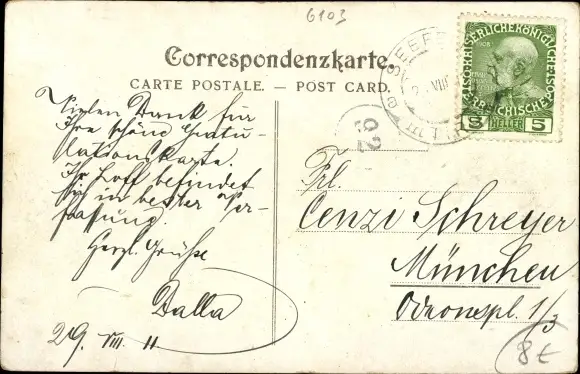 6103
Correspondenzkarte.
CARTE POSTALE. — POST CARD.
Vielen Dank für
Ihre schöne Gratu-
lationskarte.
Ihr befindet
sich in bester Ver-
fassung.
Herzl. Grüße
Dalla
29. VIII. 11
SEEFE
VIII
KAISERLICHE KÖNIGLICHE
1908
ÖSTERREICHISCHE
5 HELLER 5
29
Frl.
Cenzi Schreyer
München
Odeonspl. 1/3
8€